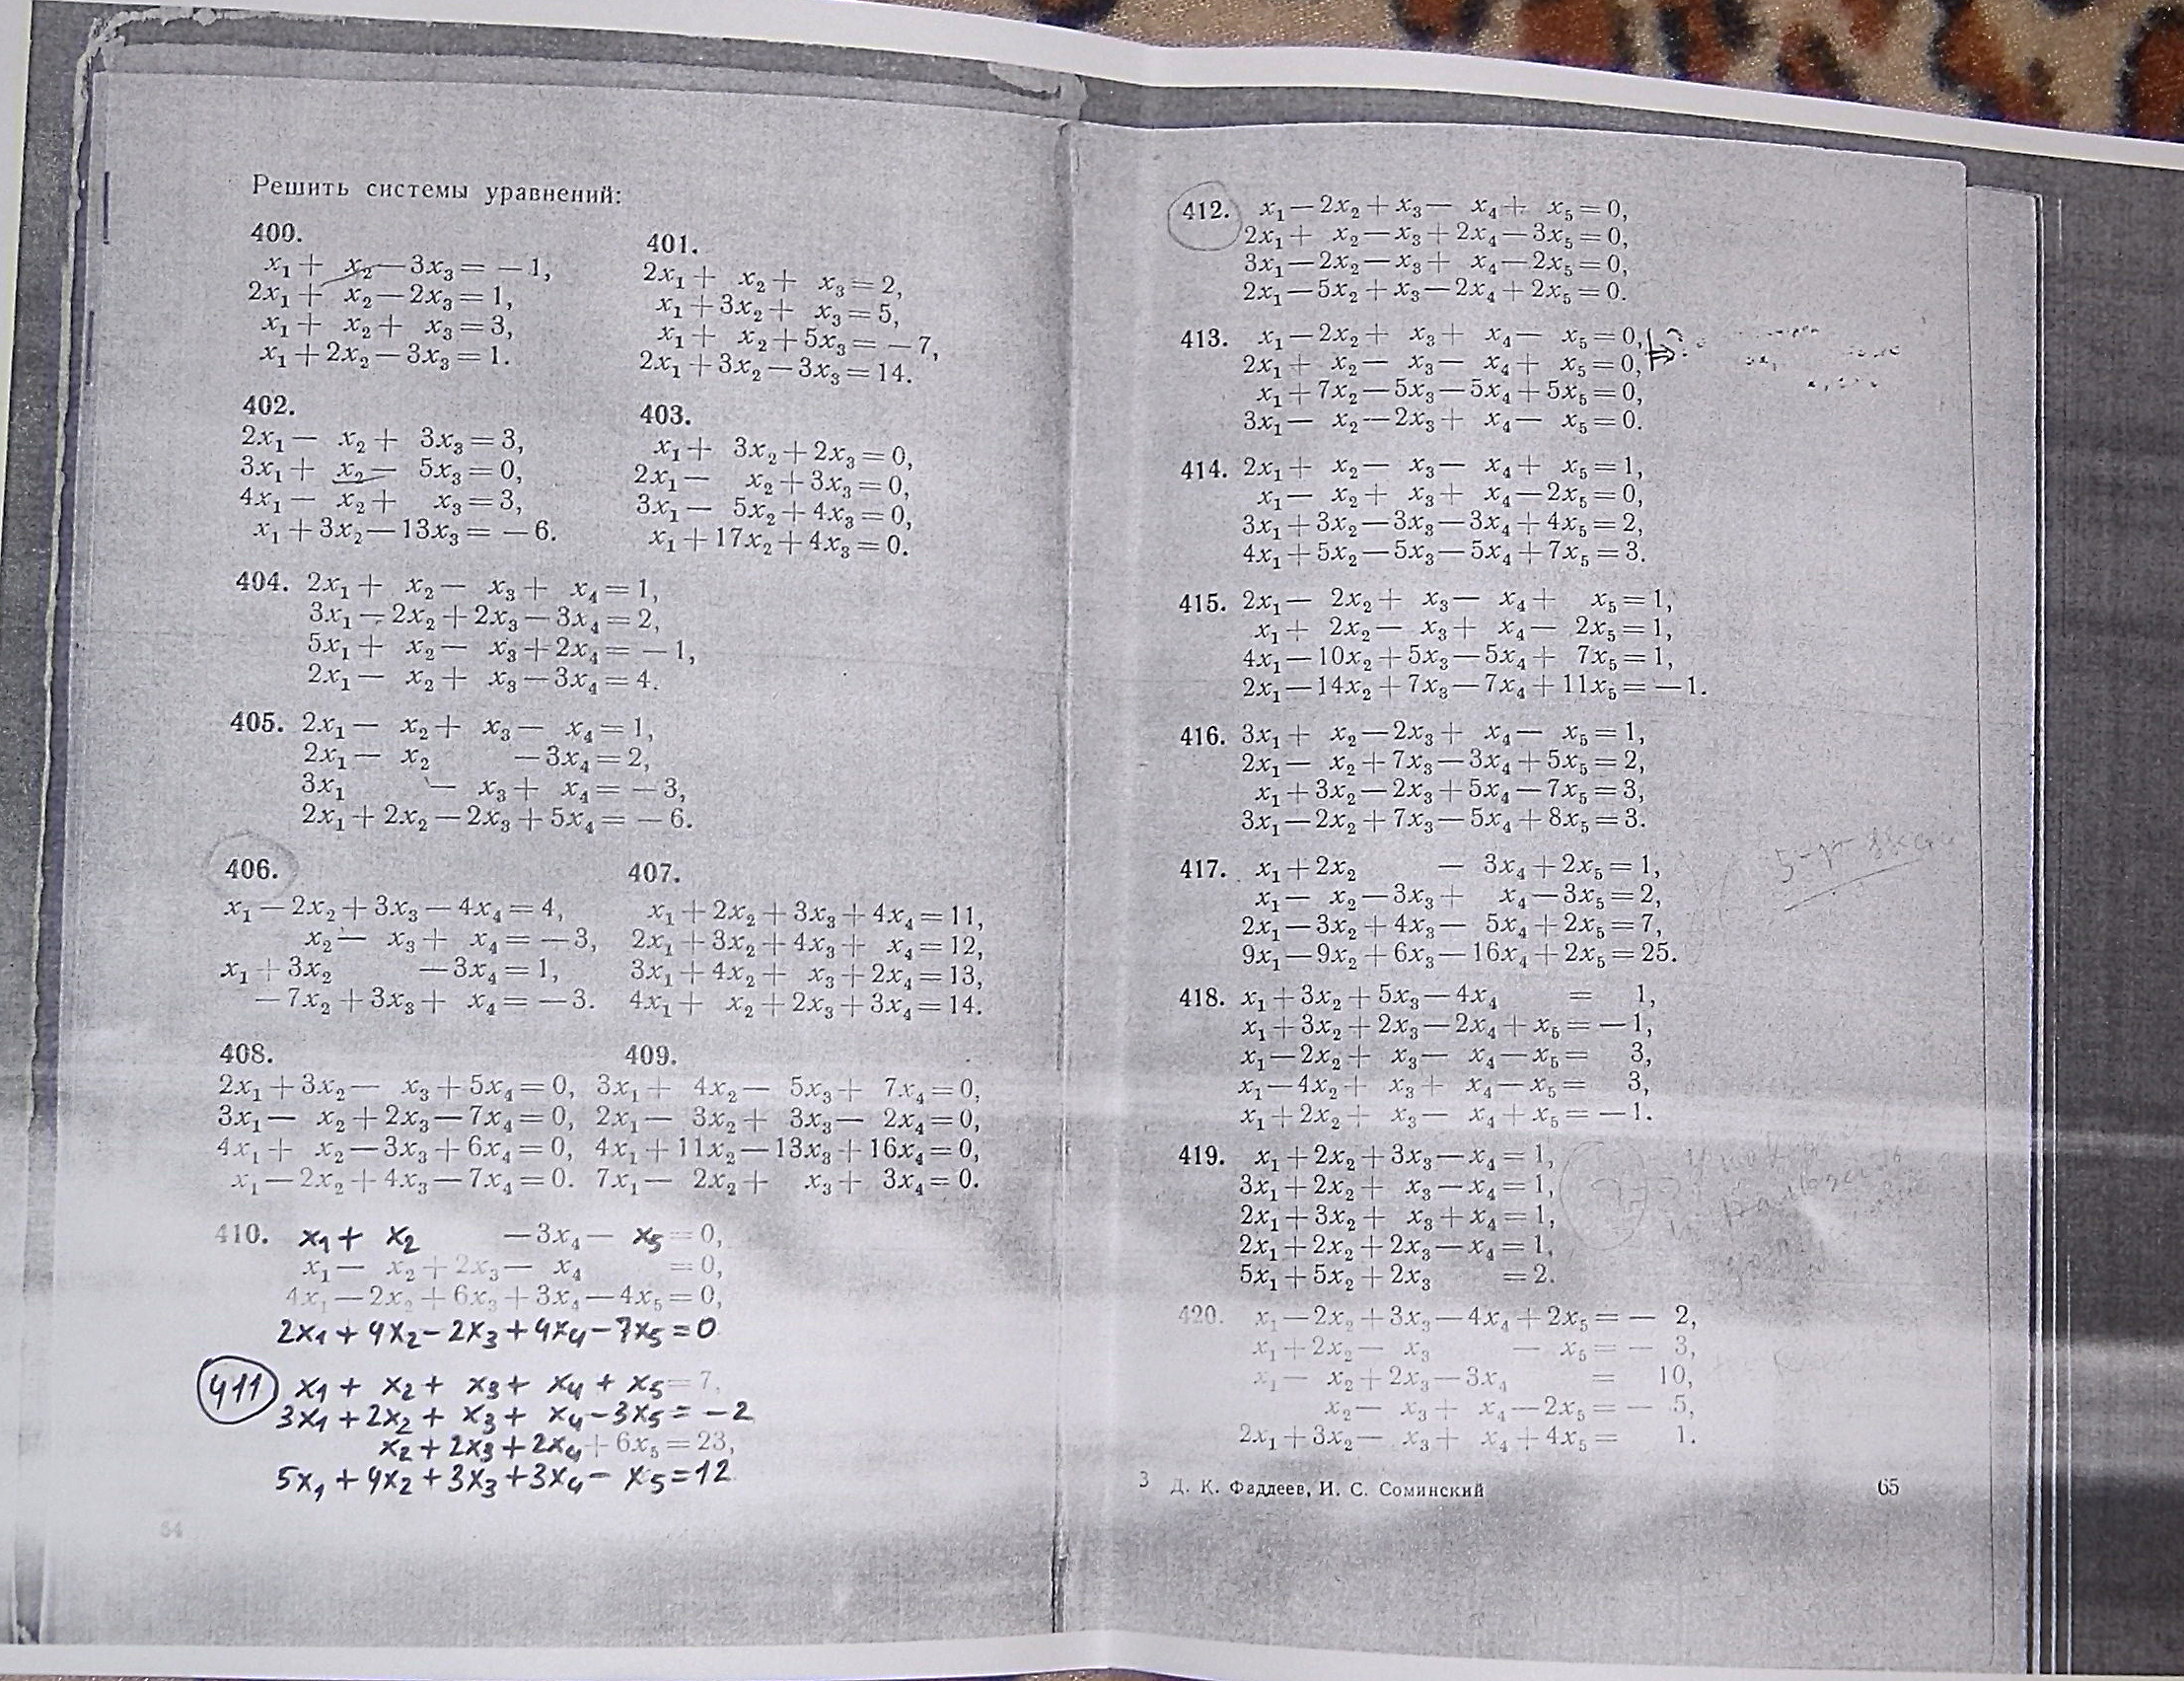 Решить системы уравнений:
400.
x₁ + x₂ − 3x₃ = − 1,
2x₁ + x₂ − 2x₃ = 1,
x₁ + x₂ + x₃ = 3,
x₁ + 2x₂ − 3x₃ = 1.
401.
2x₁ + x₂ + x₃ = 2,
x₁ + 3x₂ + x₃ = 5,
x₁ + x₂ + 5x₃ = − 7,
2x₁ + 3x₂ − 3x₃ = 14.
402.
2x₁ − x₂ + 3x₃ = 3,
3x₁ + x₂ − 5x₃ = 0,
4x₁ − x₂ + x₃ = 3,
x₁ + 3x₂ − 13x₃ = − 6.
403.
x₁ + 3x₂ + 2x₃ = 0,
2x₁ − x₂ + 3x₃ = 0,
3x₁ − 5x₂ + 4x₃ = 0,
x₁ + 17x₂ + 4x₃ = 0.
404. 2x₁ + x₂ − x₃ + x₄ = 1,
3x₁ − 2x₂ + 2x₃ − 3x₄ = 2,
5x₁ + x₂ − x₃ + 2x₄ = − 1,
2x₁ − x₂ + x₃ − 3x₄ = 4.
405. 2x₁ − x₂ + x₃ − x₄ = 1,
2x₁ − x₂ − 3x₄ = 2,
3x₁ − x₃ + x₄ = − 3,
2x₁ + 2x₂ − 2x₃ + 5x₄ = − 6.
406.
x₁ − 2x₂ + 3x₃ − 4x₄ = 4,
x₂ − x₃ + x₄ = − 3,
x₁ + 3x₂ − 3x₄ = 1,
− 7x₂ + 3x₃ + x₄ = − 3.
407.
x₁ + 2x₂ + 3x₃ + 4x₄ = 11,
2x₁ + 3x₂ + 4x₃ + x₄ = 12,
3x₁ + 4x₂ + x₃ + 2x₄ = 13,
4x₁ + x₂ + 2x₃ + 3x₄ = 14.
408.
2x₁ + 3x₂ − x₃ + 5x₄ = 0,
3x₁ − x₂ + 2x₃ − 7x₄ = 0,
4x₁ + x₂ − 3x₃ + 6x₄ = 0,
x₁ − 2x₂ + 4x₃ − 7x₄ = 0.
409.
3x₁ + 4x₂ − 5x₃ + 7x₄ = 0,
2x₁ − 3x₂ + 3x₃ − 2x₄ = 0,
4x₁ + 11x₂ − 13x₃ + 16x₄ = 0,
7x₁ − 2x₂ + x₃ + 3x₄ = 0.
410. x₁ + x₂ − 3x₄ − x₅ = 0,
x₁ − x₂ + 2x₃ − x₄ = 0,
4x₁ − 2x₂ + 6x₃ + 3x₄ − 4x₅ = 0,
2x₁ + 4x₂ − 2x₃ + 4x₄ − 7x₅ = 0
411 x₁ + x₂ + x₃ + x₄ + x₅ = 7,
3x₁ + 2x₂ + x₃ + x₄ − 3x₅ = −2
x₂ + 2x₃ + 2x₄ + 6x₅ = 23,
5x₁ + 4x₂ + 3x₃ + 3x₄ − x₅ = 12
64
412. x₁ − 2x₂ + x₃ − x₄ + x₅ = 0,
2x₁ + x₂ − x₃ + 2x₄ − 3x₅ = 0,
3x₁ − 2x₂ − x₃ + x₄ − 2x₅ = 0,
2x₁ − 5x₂ + x₃ − 2x₄ + 2x₅ = 0.
413. x₁ − 2x₂ + x₃ + x₄ − x₅ = 0,
2x₁ + x₂ − x₃ − x₄ + x₅ = 0,
x₁ + 7x₂ − 5x₃ − 5x₄ + 5x₅ = 0,
3x₁ − x₂ − 2x₃ + x₄ − x₅ = 0.
414. 2x₁ + x₂ − x₃ − x₄ + x₅ = 1,
x₁ − x₂ + x₃ + x₄ − 2x₅ = 0,
3x₁ + 3x₂ − 3x₃ − 3x₄ + 4x₅ = 2,
4x₁ + 5x₂ − 5x₃ − 5x₄ + 7x₅ = 3.
415. 2x₁ − 2x₂ + x₃ − x₄ + x₅ = 1,
x₁ + 2x₂ − x₃ + x₄ − 2x₅ = 1,
4x₁ − 10x₂ + 5x₃ − 5x₄ + 7x₅ = 1,
2x₁ − 14x₂ + 7x₃ − 7x₄ + 11x₅ = − 1.
416. 3x₁ + x₂ − 2x₃ + x₄ − x₅ = 1,
2x₁ − x₂ + 7x₃ − 3x₄ + 5x₅ = 2,
x₁ + 3x₂ − 2x₃ + 5x₄ − 7x₅ = 3,
3x₁ − 2x₂ + 7x₃ − 5x₄ + 8x₅ = 3.
417. x₁ + 2x₂ − 3x₄ + 2x₅ = 1,
x₁ − x₂ − 3x₃ + x₄ − 3x₅ = 2,
2x₁ − 3x₂ + 4x₃ − 5x₄ + 2x₅ = 7,
9x₁ − 9x₂ + 6x₃ − 16x₄ + 2x₅ = 25.
418. x₁ + 3x₂ + 5x₃ − 4x₄ = 1,
x₁ + 3x₂ + 2x₃ − 2x₄ + x₅ = − 1,
x₁ − 2x₂ + x₃ − x₄ − x₅ = 3,
x₁ − 4x₂ + x₃ + x₄ − x₅ = 3,
x₁ + 2x₂ + x₃ − x₄ + x₅ = − 1.
419. x₁ + 2x₂ + 3x₃ − x₄ = 1,
3x₁ + 2x₂ + x₃ − x₄ = 1,
2x₁ + 3x₂ + x₃ + x₄ = 1,
2x₁ + 2x₂ + 2x₃ − x₄ = 1,
5x₁ + 5x₂ + 2x₃ = 2.
420. x₁ − 2x₂ + 3x₃ − 4x₄ + 2x₅ = − 2,
x₁ + 2x₂ − x₃ − x₅ = − 3,
x₁ − x₂ + 2x₃ − 3x₄ = 10,
x₂ − x₃ + x₄ − 2x₅ = − 5,
2x₁ + 3x₂ − x₃ + x₄ + 4x₅ = 1.
3 Д. К. Фаддеев, И. С. Соминский 65